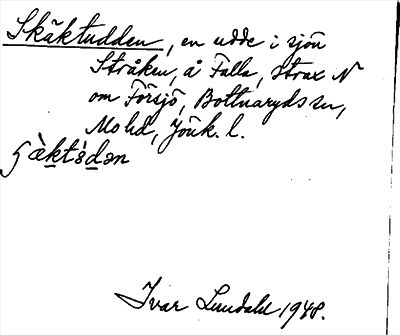 Skäktudden, en udde i sjön
Stråken, å Falla, strax N
om Forsjö, Bottnaryds sn,
Mo hd, Jönk. l.
Ivar Lundahl 1948.